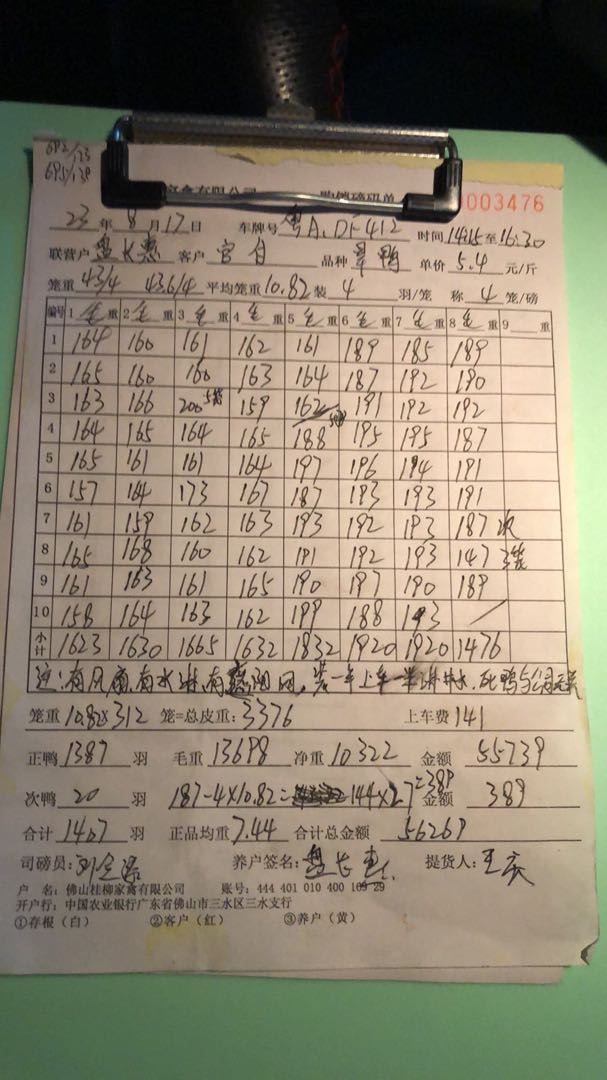 692/123
695/138
禽有限公司 购销磅码单 0003476
23年8月17日 车牌号 粤A.DF412 时间14:15至16:30
联营户 盘长惠 客户 官自 品种 草鸭 单价5.4元/斤
笼重43/4 43.6/4 平均笼重10.82 装4羽/笼 称4笼/磅
编号 1毛重 2毛重 3毛重 4毛重 5毛重 6毛重 7毛重 8毛重 9 重
1 164 160 161 162 161 189 185 189
2 165 160 160 163 164 187 192 190
3 163 166 200 5笼 159 162 191 192 192
4 164 165 164 165 188 195 195 187
5 165 161 161 164 197 196 194 191
6 157 164 173 167 187 193 193 191
7 161 159 162 163 193 192 193 187 次
8 165 168 160 162 191 192 193 147 3笼
9 161 163 161 165 190 197 190 189
10 158 164 163 162 199 188 193 /
小计 1623 1630 1665 1632 1832 1920 1920 1476
注:有风扇,有水淋,有遮阳网,装一车上车一半淋水,死鸭与公司无关
笼重10.82×312 笼=总皮重:3376 上车费141
正鸭1387羽 毛重13698 净重10322 金额55739
次鸭20羽 187-4×10.82= 144×2.7=389 金额389
合计1407羽 正品均重7.44 合计总金额56269
司磅员: 养户签名:盘长惠 提货人:王庆
户 名:佛山桂柳家禽有限公司 账号:444 401 010 400 109 29
开户行:中国农业银行广东省佛山市三水区三水支行
①存根(白) ②客户(红) ③养户(黄)